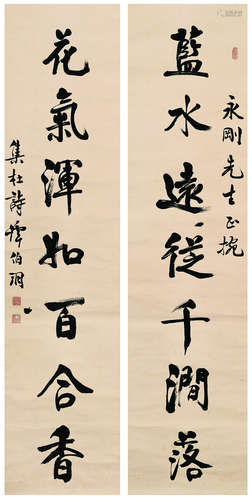 永剛先生正捥
藍水遠從千澗落
花氣渾如百合香
集杜詩譚伯羽